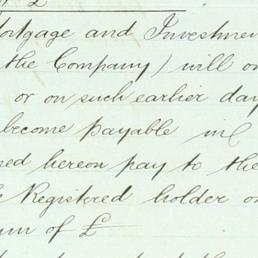 £
ortgage and Investmen
the Company) will on
or on such earlier day
become payable in
ed hereon pay to the
Registered holder o
um of £